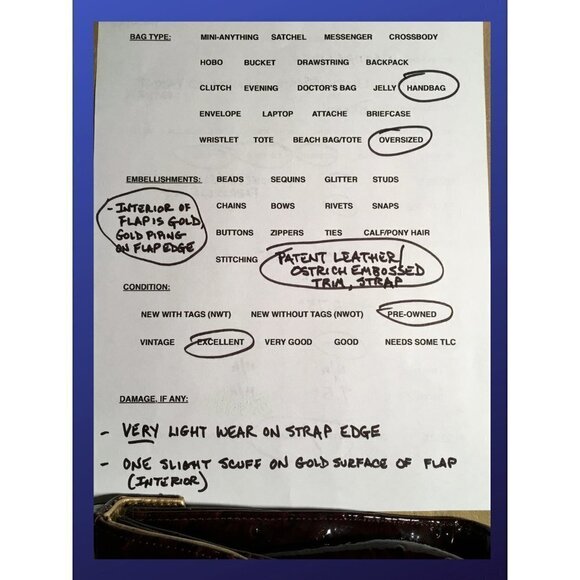 BAG TYPE: MINI-ANYTHING SATCHEL MESSENGER CROSSBODY
HOBO BUCKET DRAWSTRING BACKPACK
CLUTCH EVENING DOCTOR'S BAG JELLY HANDBAG
ENVELOPE LAPTOP ATTACHE BRIEFCASE
WRISTLET TOTE BEACH BAG/TOTE OVERSIZED
EMBELLISHMENTS: BEADS SEQUINS GLITTER STUDS
- INTERIOR OF
FLAP IS GOLD,
GOLD PIPING
ON FLAP EDGE
CHAINS BOWS RIVETS SNAPS
BUTTONS ZIPPERS TIES CALF/PONY HAIR
STITCHING
PATENT LEATHER/
OSTRICH EMBOSSED
TRIM, STRAP
CONDITION:
NEW WITH TAGS (NWT) NEW WITHOUT TAGS (NWOT) PRE-OWNED
VINTAGE EXCELLENT VERY GOOD GOOD NEEDS SOME TLC
DAMAGE, IF ANY:
- VERY LIGHT WEAR ON STRAP EDGE
- ONE SLIGHT SCUFF ON GOLD SURFACE OF FLAP
(INTERIOR)